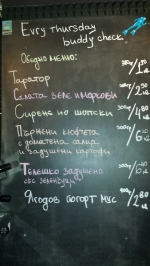 Evry thursday
buddy check
Обедно меню:
Таратор 300гр/1 50 лв
Салата зеле и моркови 300гр/2 50 лв
Сирене по шопски 300гр/4 80 лв
Пържени кюфтета
с доматена салца
и задушени картофи
Телешко задушено
със зеленчуци
Ягодов йогурт мус